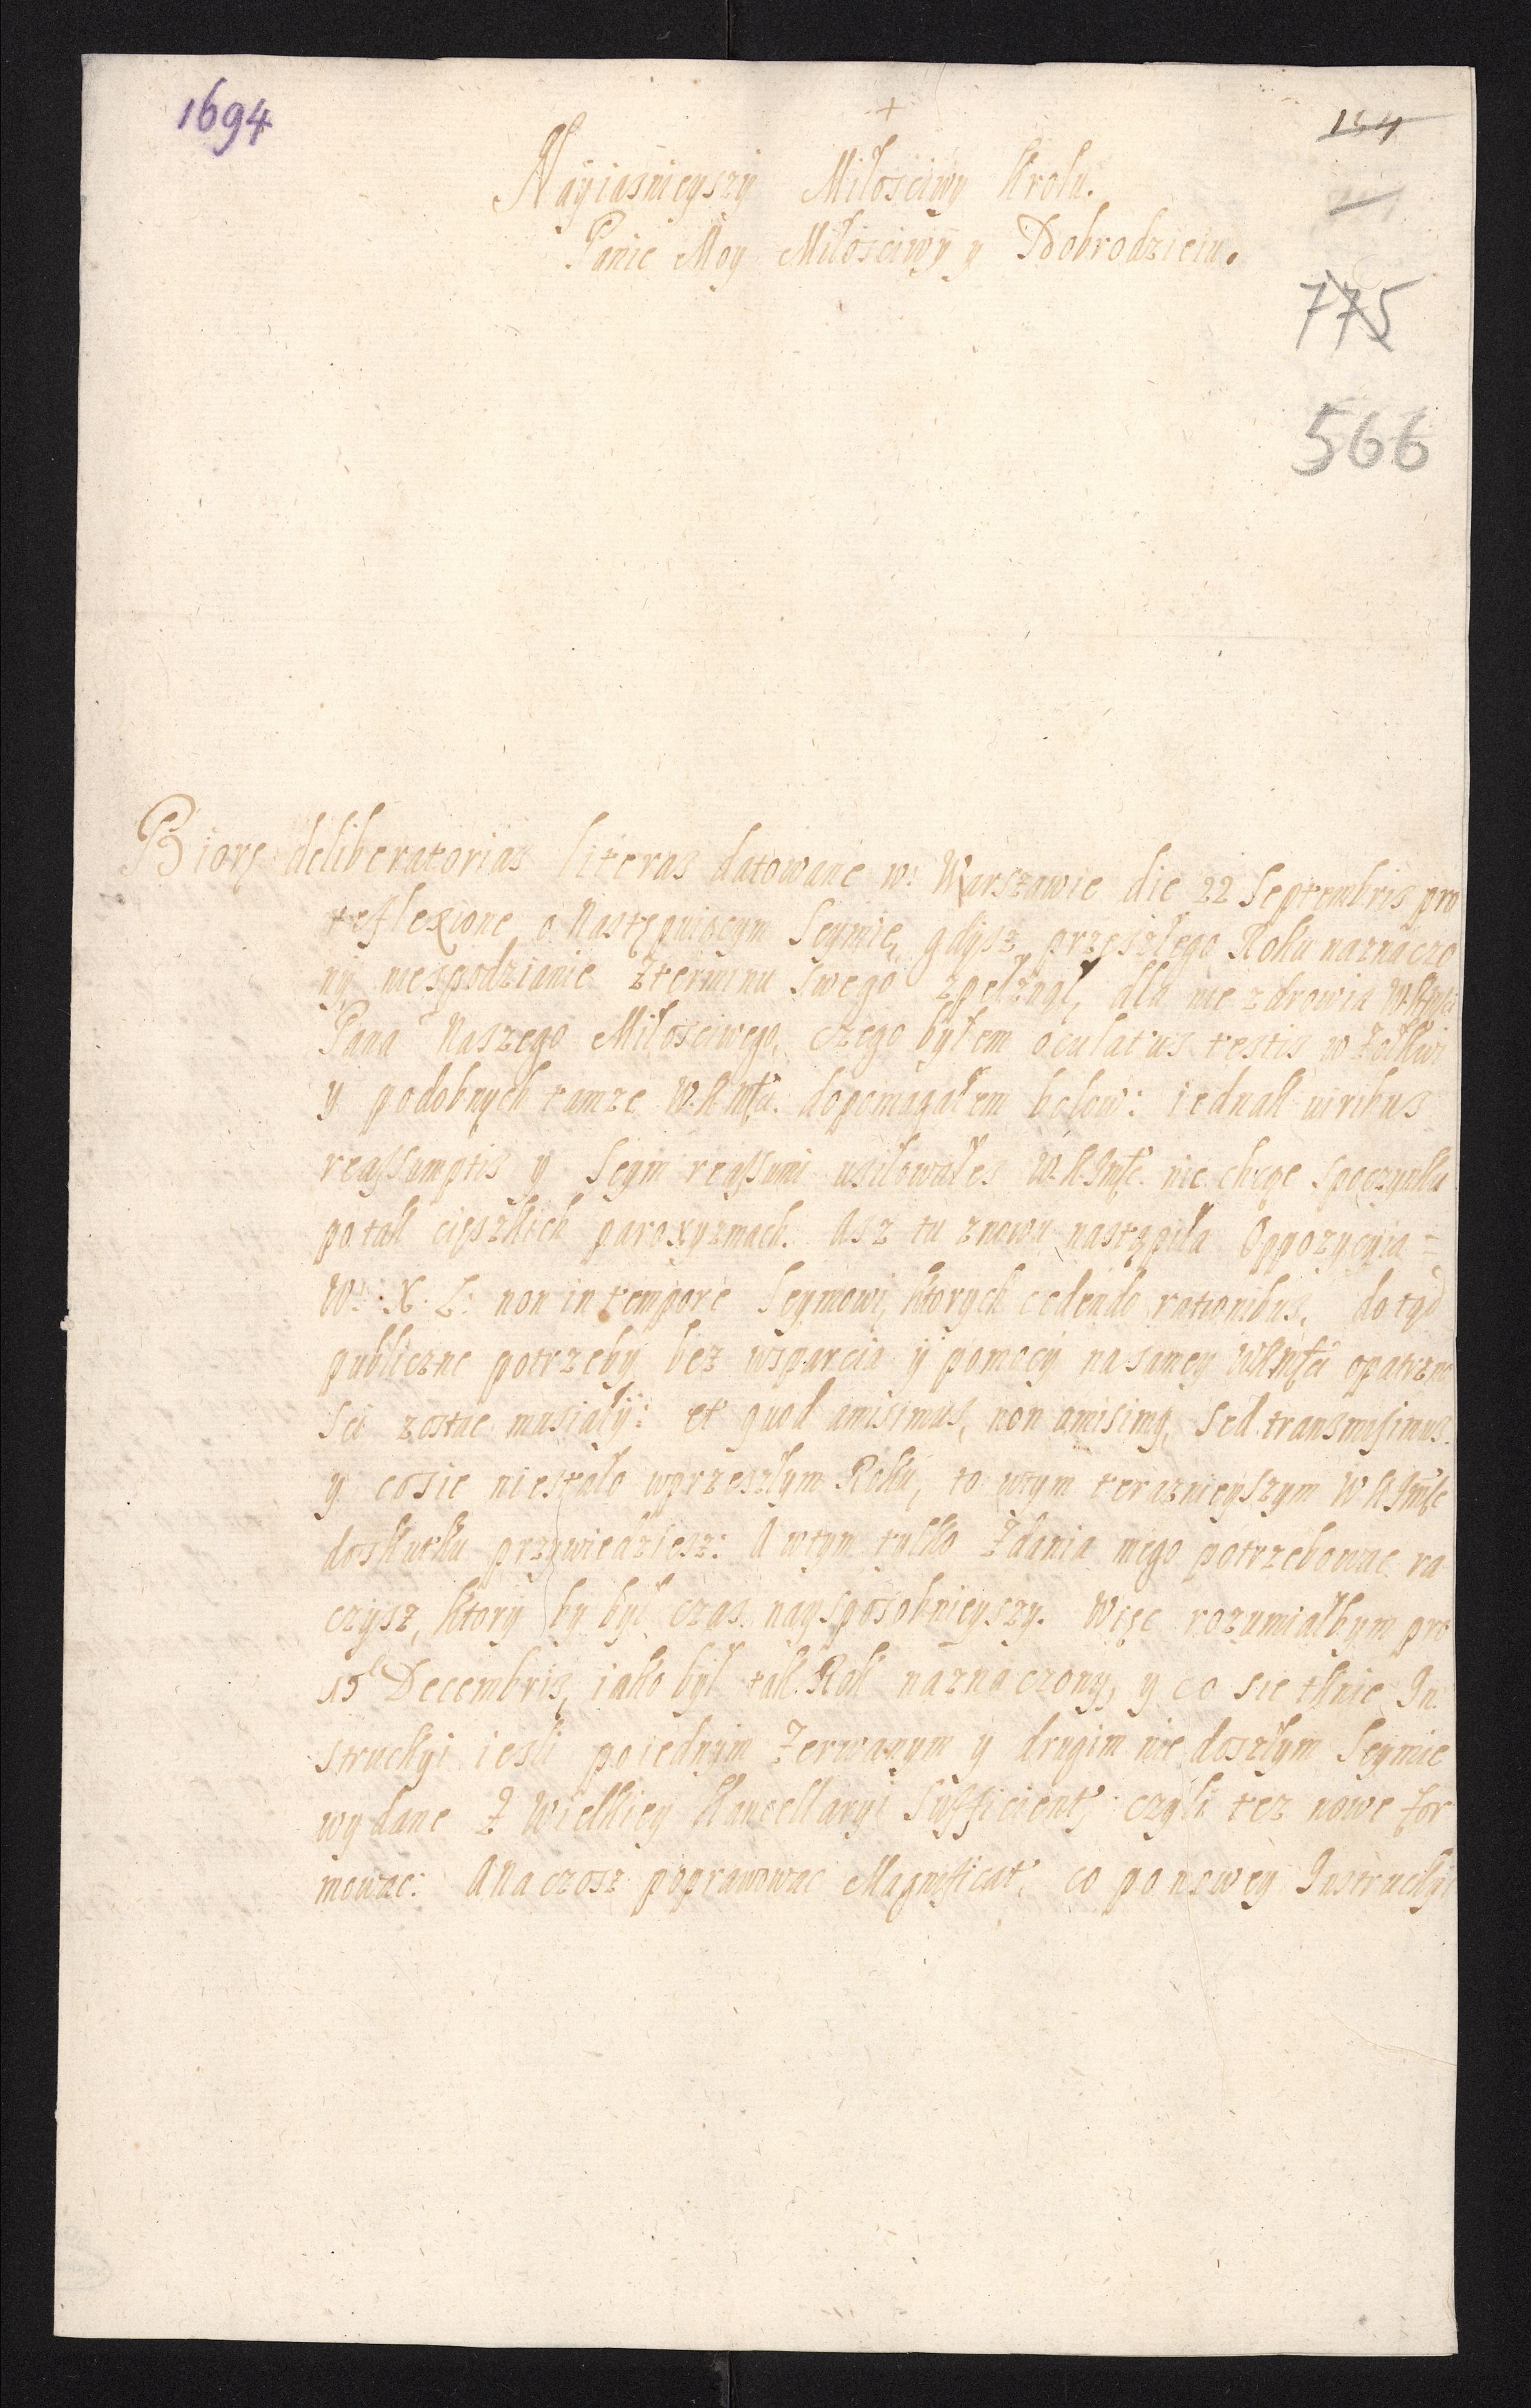 1694
+
154
Nayiasnieyszy Miłosciwy Krolu.
Panie Moy Miłosciwy y Dobrodzieiu.
775
566
Biorę deliberatorias literas datowane w: Warszawie die 22 Septembris pro
reflexione o Następuiącym Seymie, gdysz przeszłego Roku naznaczo
ny niespodzianie zterminu swego zpełznął, dla nie zdrowia W.K.Mści
Pana Naszego Miłosciwego, czego byłem oculatus testis w Żołkwi
y podobnych tamze W.K.Mści. dopomagałem bolow: iednak viribus
reassumptis y Seym reassumi usiłowałes W.K.Mść. nie chcąc spoczynku
po tak cięszkich paroxyzmach. Asz tu znowu nastąpiła Oppozycyia =
W: X. L: non in tempore Seymowi, ktorych cedendo rationibus, do tąd
publiczne potrzeby bez wsparcia y pomocy na samey WKMści opatrzno
sci zostac musiały: et quod amisimus, non amisimq, sed transmisimus.
y cosie niestało wprzeszłym Roku, to wtym teraznieyszym WKMść
doskutku przywiedziesz: A wtym tylko zdania mego potrzebowac ra
czysz, ktory by był czas naysposobnieyszy. Więc rozumiałbym pro
15 Decembris, iako był tak Rok naznaczony, y co sie tknie In
strukcyi iesli poiednym zerwanym y drugim nie doszłym Seymie
wydane z Wielkiey Kancellaryi sufficient, czyli tez nowe for
mowac: Ana czosz poprawowac Magnificat, co po nowey Instrukcyi